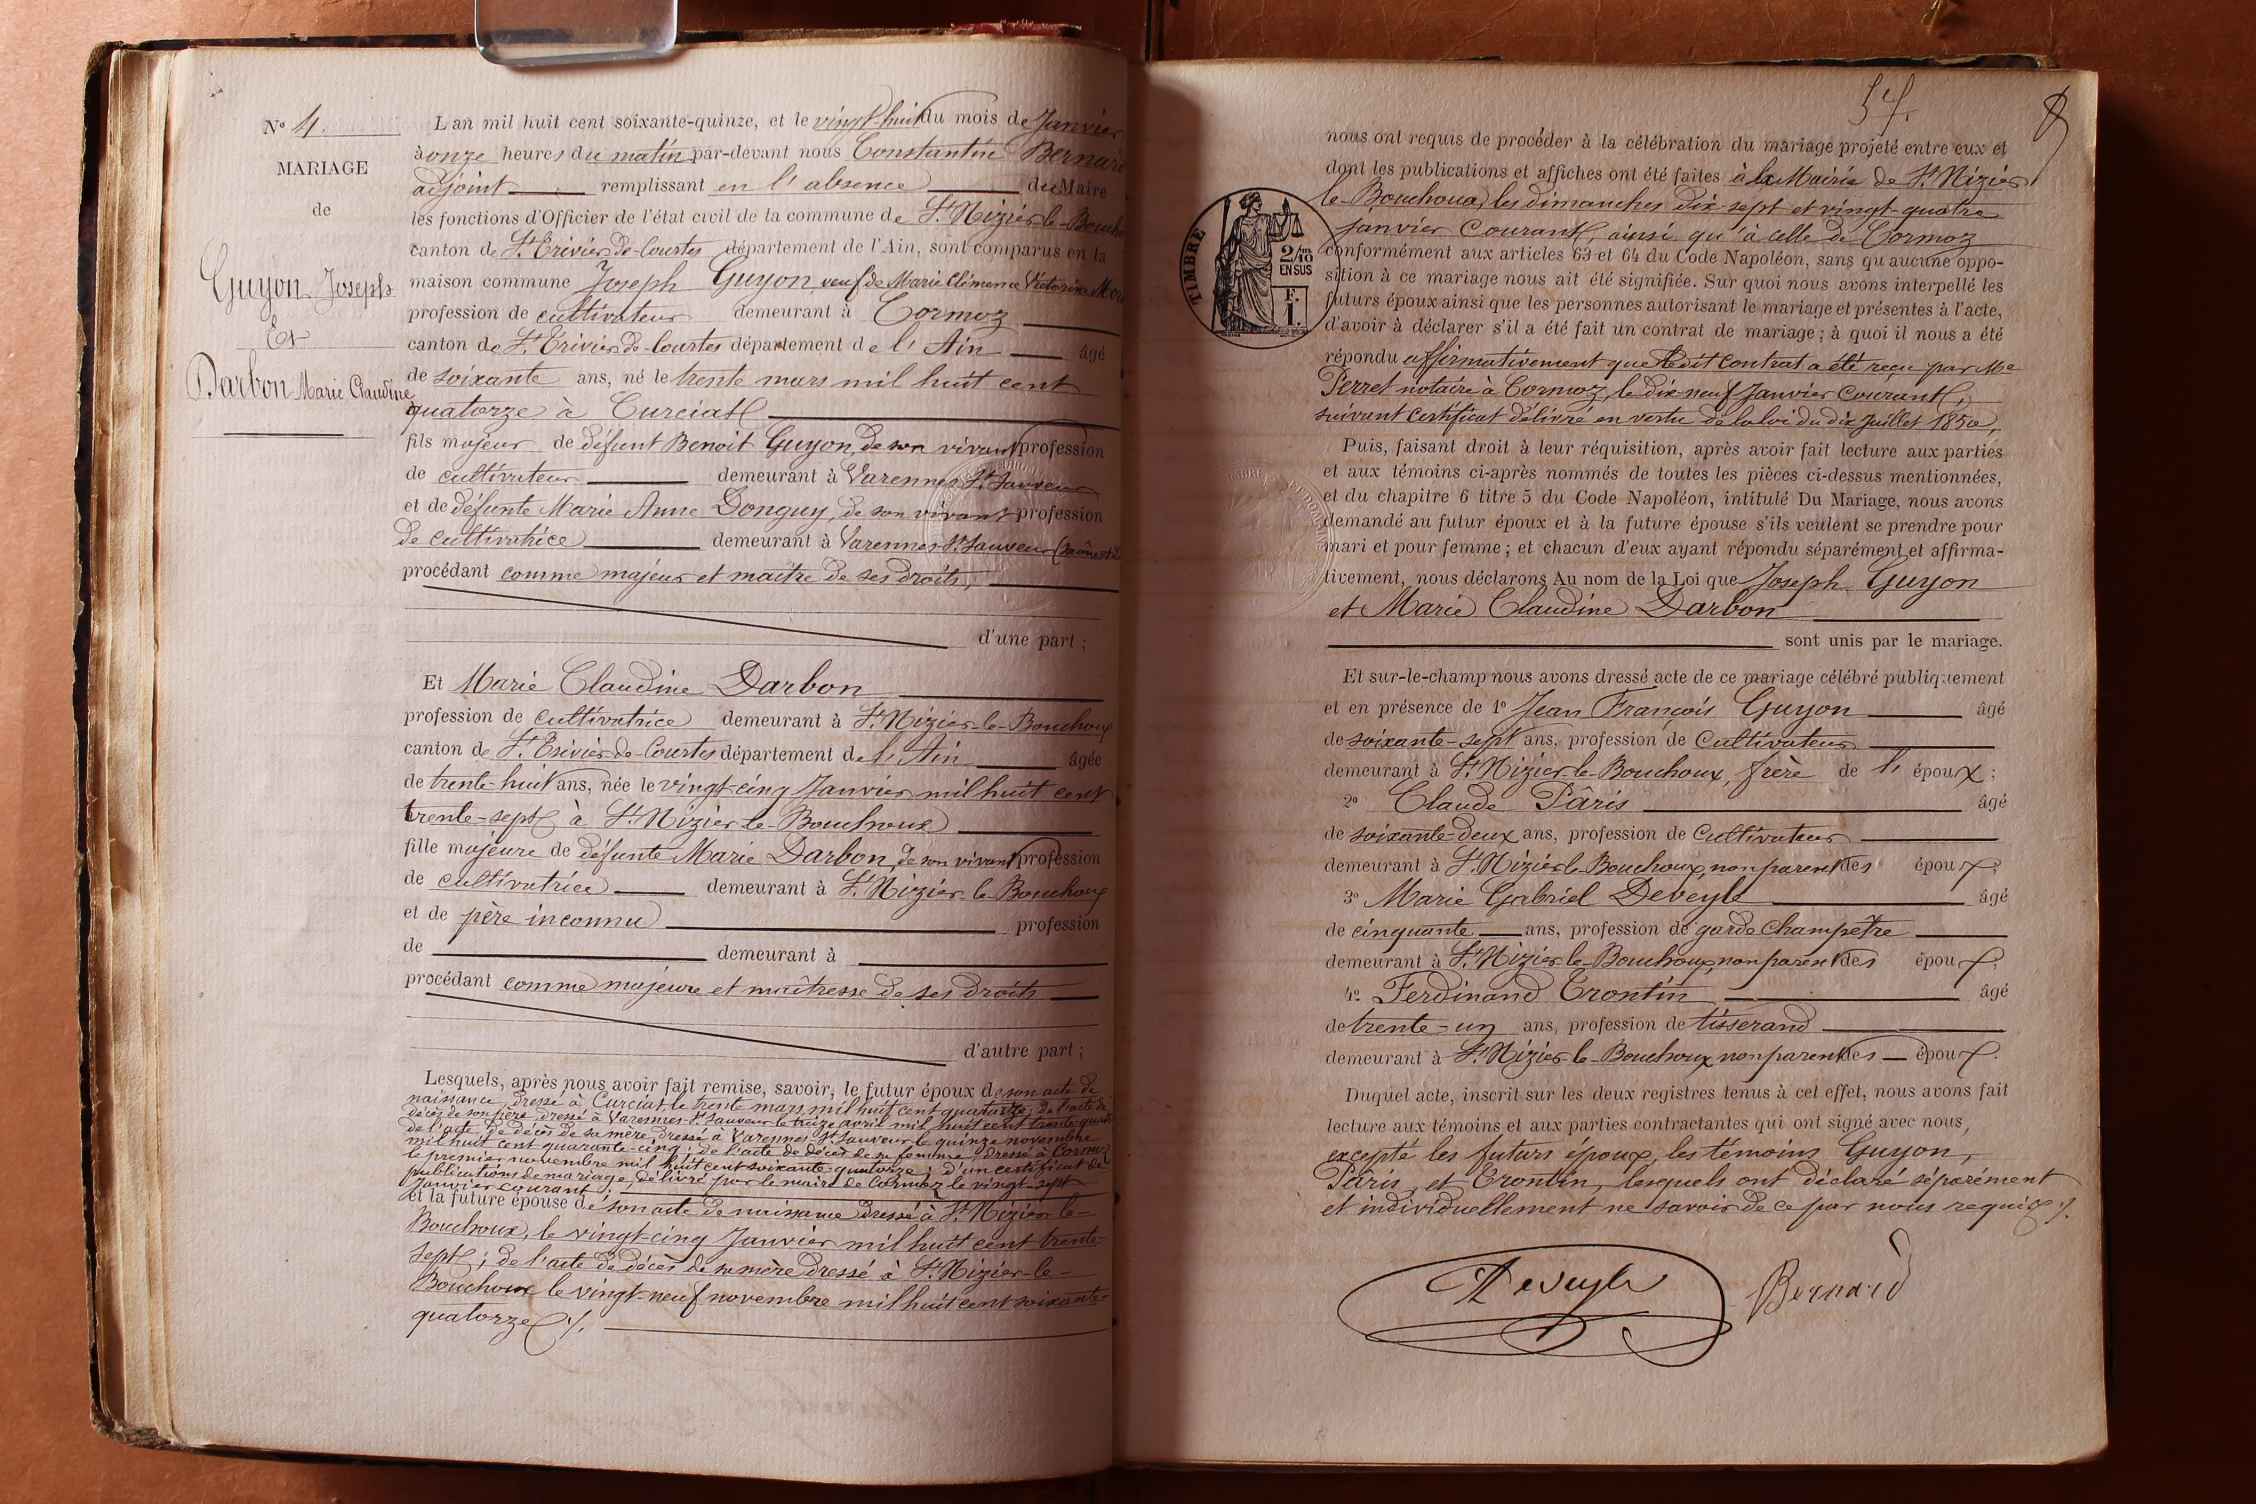 Nº 4.
MARIAGE
de
Guyon Joseph
Et
Darbon Marie Claudine
L'an mil huit cent soixante-quinze, et le vingt-huit du mois de Janvier
à onze heures du matin par-devant nous Constantin Bernard
adjoint remplissant en l'absence du Maire
les fonctions d'Officier de l'état civil de la commune de St Nizier-le-Bouch
canton de St Trivier-de-Courtes département de l'Ain, sont comparus en la
maison commune Joseph Guyon, veuf de Marie Clémence Victorine
profession de cultivateur demeurant à Cormoz
canton de St Trivier-de-Courtes département de l'Ain âgé
de soixante ans, né le trente mars mil huit cent
quatorze à Curciat
fils majeur de défunt Benoit Guyon, de son vivant profession
de cultivateur demeurant à Varennes-St-Sauveur
et de défunte Marie Anne Donguy, de son vivant profession
de cultivatrice demeurant à Varennes-St-Sauveur (Saône et
procédant comme majeur et maître de ses droits,
d'une part ;
Et Marie Claudine Darbon
profession de cultivatrice demeurant à St Nizier-le-Bouchoux
canton de St Trivier-de-Courtes département de l'Ain âgée
de trente-huit ans, née le vingt-cinq Janvier mil huit cent
trente-sept à St Nizier-le-Bouchoux
fille majeure de défunte Marie Darbon, de son vivant profession
de cultivatrice demeurant à St Nizier-le-Bouchoux
et de père inconnu profession
de demeurant à
procédant comme majeure et maîtresse de ses droits
d'autre part ;
Lesquels, après nous avoir fait remise, savoir, le futur époux de son acte de
naissance, dressé à Curciat, le trente mars mil huit cent quatorze; de l'acte de
décès de son père dressé à Varennes-St-Sauveur le treize avril mil huit cent trente-quatre
de l'acte de décès de sa mère, dressé à Varennes-St-Sauveur le quinze novembre
mil huit cent quarante-cinq; de l'acte de décès de sa femme dressé à Cormoz
le premier novembre mil huit cent soixante-quatorze; d'un certificat de
publications de mariage, délivré par le maire de Cormoz le vingt-sept
Janvier courant;
et la future épouse de son acte de naissance dressé à St Nizier-le-
Bouchoux, le vingt-cinq Janvier mil huit cent trente-
sept; de l'acte de décès de sa mère dressé à St Nizier-le-
Bouchoux le vingt-neuf novembre mil huit cent soixante-
quatorze ./.
54.
8
TIMBRE
2/10
EN SUS
F.
1.
nous ont requis de procéder à la célébration du mariage projeté entre eux et
dont les publications et affiches ont été faites à la Mairie de St Nizier
le-Bouchoux, les dimanches dix-sept et vingt-quatre
janvier Courant, ainsi qu'à celle de Cormoz
conformément aux articles 63 et 64 du Code Napoléon, sans qu'aucune oppo-
sition à ce mariage nous ait été signifiée. Sur quoi nous avons interpellé les
futurs époux ainsi que les personnes autorisant le mariage et présentes à l'acte,
d'avoir à déclarer s'il a été fait un contrat de mariage; à quoi il nous a été
répondu affirmativement que ledit contrat a été reçu par Me
Perret notaire à Cormoz, le dix-neuf Janvier courant,
suivant certificat délivré en vertu de la loi du dix Juillet 1850,
Puis, faisant droit à leur réquisition, après avoir fait lecture aux parties
et aux témoins ci-après nommés de toutes les pièces ci-dessus mentionnées,
et du chapitre 6 titre 5 du Code Napoléon, intitulé Du Mariage, nous avons
demandé au futur époux et à la future épouse s'ils veulent se prendre pour
mari et pour femme ; et chacun d'eux ayant répondu séparément et affirma-
tivement, nous déclarons Au nom de la Loi que Joseph Guyon
et Marie Claudine Darbon
sont unis par le mariage.
Et sur-le-champ nous avons dressé acte de ce mariage célébré publiquement
et en présence de 1º Jean François Guyon âgé
de soixante-sept ans, profession de Cultivateur
demeurant à St Nizier-le-Bouchoux, frère de l' époux ;
2º Claude Pâris âgé
de soixante-deux ans, profession de Cultivateur
demeurant à St Nizier-le-Bouchoux, non parent des époux ;
3º Marie Gabriel Deveyle âgé
de cinquante ans, profession de garde champêtre
demeurant à St Nizier-le-Bouchoux, non parent des époux ;
4º Ferdinand Trontin âgé
de trente-un ans, profession de tisserand
demeurant à St Nizier-le-Bouchoux non parent des époux.
Duquel acte, inscrit sur les deux registres tenus à cet effet, nous avons fait
lecture aux témoins et aux parties contractantes qui ont signé avec nous,
excepté les futurs époux, les témoins Guyon,
Pâris, et Trontin, lesquels ont déclaré séparément
et individuellement ne savoir de ce par nous requis ./.
Deveyle
Bernard